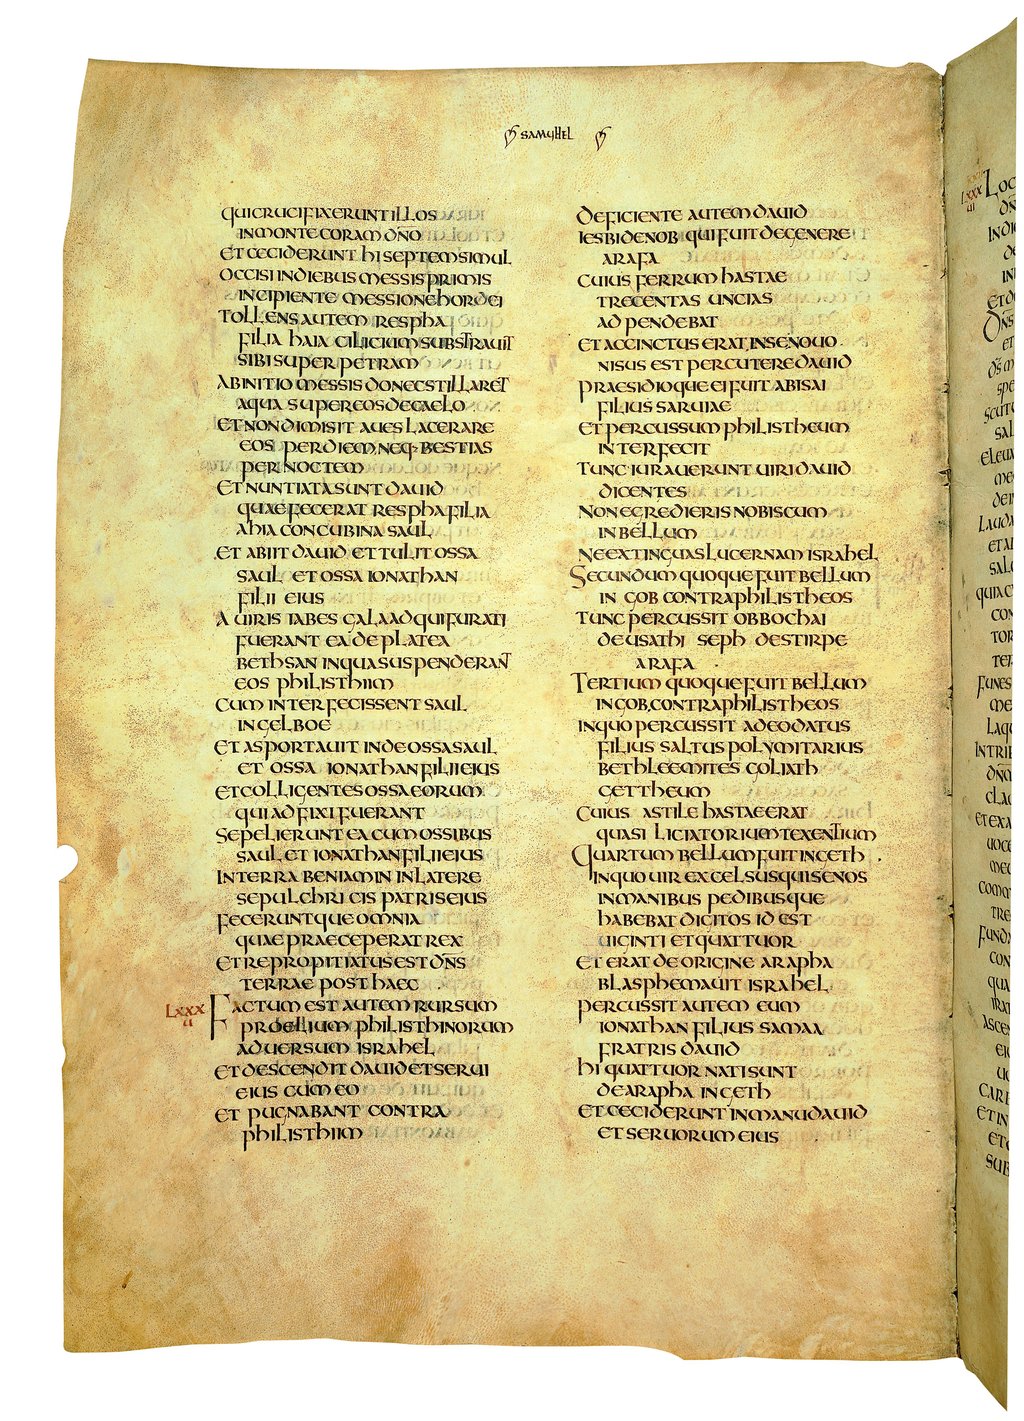 SAMUHEL
QUI CRUCIFIXERUNT ILLOS
IN MONTE CORAM DÑO
ET CECIDERUNT HI SEPTEM SIMUL
OCCISI IN DIEBUS MESSIS PRIMIS
INCIPIENTE MESSIONE HORDEI
TOLLENS AUTEM RESPHA
FILIA HAIA CILICIUM SUBSTRAUIT
SIBI SUPER PETRAM
AB INITIO MESSIS DONEC STILLARET
AQUA SUPER EOS DE CAELO
ET NON DIMISIT AUES LACERARE
EOS PER DIEM NEQ· BESTIAS
PER NOCTEM
ET NUNTIATA SUNT DAUID
QUAE FECERAT RESPHA FILIA
AHIA CONCUBINA SAUL
ET ABIIT DAUID ET TULIT OSSA
SAUL ET OSSA IONATHAN
FILII EIUS
A UIRIS IABES GALAAD QUI FURATI
FUERANT EA DE PLATEA
BETHSAN IN QUA SUSPENDERAÑT
EOS PHILISTHIIM
CUM INTERFECISSENT SAUL
IN GELBOE
ET ASPORTAUIT INDE OSSA SAUL
ET OSSA IONATHAN FILII EIUS
ET COLLIGENTES OSSA EORUM
QUI ADFIXI FUERANT
SEPELIERUNT EA CUM OSSIBUS
SAUL ET IONATHAN FILII EIUS
IN TERRA BENIAMIN IN LATERE
SEPULCHRI CIS PATRIS EIUS
FECERUNTQUE OMNIA
QUAE PRAECEPERAT REX
ET REPROPITIATUS EST DÑS
TERRAE POST HAEC
LXXXUI FACTUM EST AUTEM RURSUM
PROELIUM PHILISTHINORUM
ADUERSUM ISRAHEL
ET DESCENDIT DAUID ET SERUI
EIUS CUM EO
ET PUGNABANT CONTRA
PHILISTHIIM
DEFICIENTE AUTEM DAUID
IESBIDENOB QUI FUIT DE GENERE
ARAFA
CUIUS FERRUM HASTAE
TRECENTAS UNCIAS
ADPENDEBAT
ET ACCINCTUS ERAT ENSE NOUO
NISUS EST PERCUTERE DAUID
PRAESIDIOQUE EI FUIT ABISAI
FILIUS SARUIAE
ET PERCUSSUM PHILISTHEUM
INTERFECIT
TUNC IURAUERUNT UIRI DAUID
DICENTES
NON EGREDIERIS NOBISCUM
IN BELLUM
NE EXTINGUAS LUCERNAM ISRAHEL
SECUNDUM QUOQUE FUIT BELLUM
IN GOB CONTRA PHILISTHEOS
TUNC PERCUSSIT OBBOCHAI
DE USATHI SEPH DE STIRPE
ARAFA
TERTIUM QUOQUE FUIT BELLUM
IN GOB CONTRA PHILISTHEOS
IN QUO PERCUSSIT ADEODATUS
FILIUS SALTUS POLYMITARIUS
BETHLEEMITES GOLIATH
GETTHEUM
CUIUS ASTILE HASTAE ERAT
QUASI LICIATORIUM TEXENTIUM
QUARTUM BELLUM FUIT IN GETH
IN QUO UIR EXCELSUS QUI SENOS
IN MANIBUS PEDIBUSQUE
HABEBAT DIGITOS ID EST
UIGINTI ET QUATTUOR
ET ERAT DE ORIGINE ARAPHA
BLASPHEMAUIT ISRAHEL
PERCUSSIT AUTEM EUM
IONATHAN FILIUS SAMAA
FRATRIS DAUID
HI QUATTUOR NATI SUNT
DE ARAPHA IN GETH
ET CECIDERUNT IN MANU DAUID
ET SERUORUM EIUS